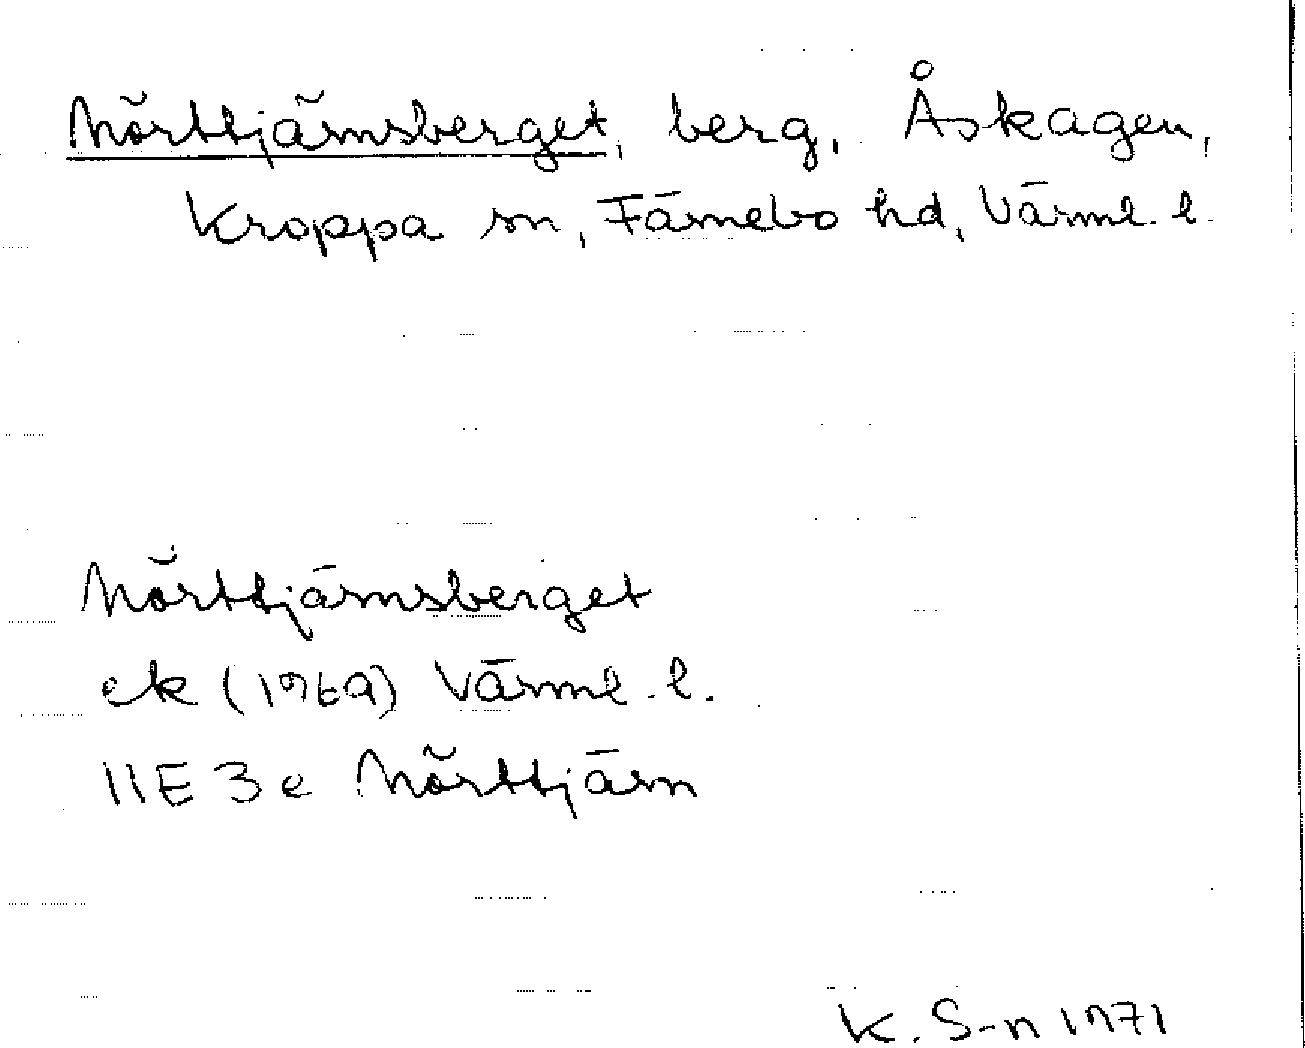 Mörttjärnsberget, berg, Åskagen,
Kroppa sn, Färnebo hd, Värml. l.
Mörttjärnsberget
ek (1969) Värml. l.
11E 3e Mörttjärn
K. S-n 1971